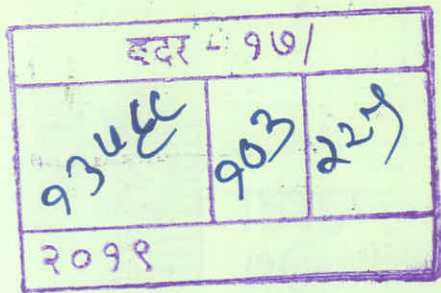 बदर - १७/
१३५६८ १०३ २२५
२०१९